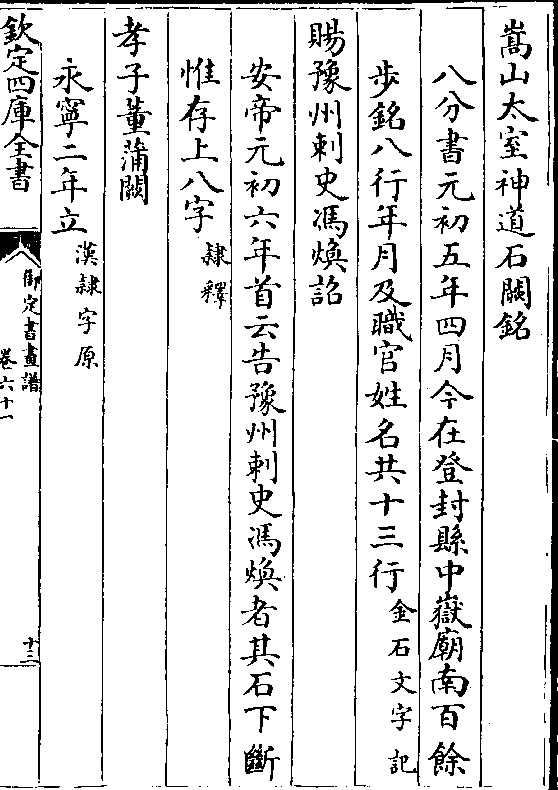 嵩山太室神道石闕銘
八分書元初五年四月今在登封縣中嶽廟南百餘
步銘八行年月及職官姓名共十三行金石文字記
賜豫州刺史馮煥詔
安帝元初六年首云告豫州刺史馮煥者其石下斷
惟存上八字隸釋
孝子董蒲闕
永寧二年立漢隸字原
欽定四庫全書
御定書畫譜
卷六十一
十三